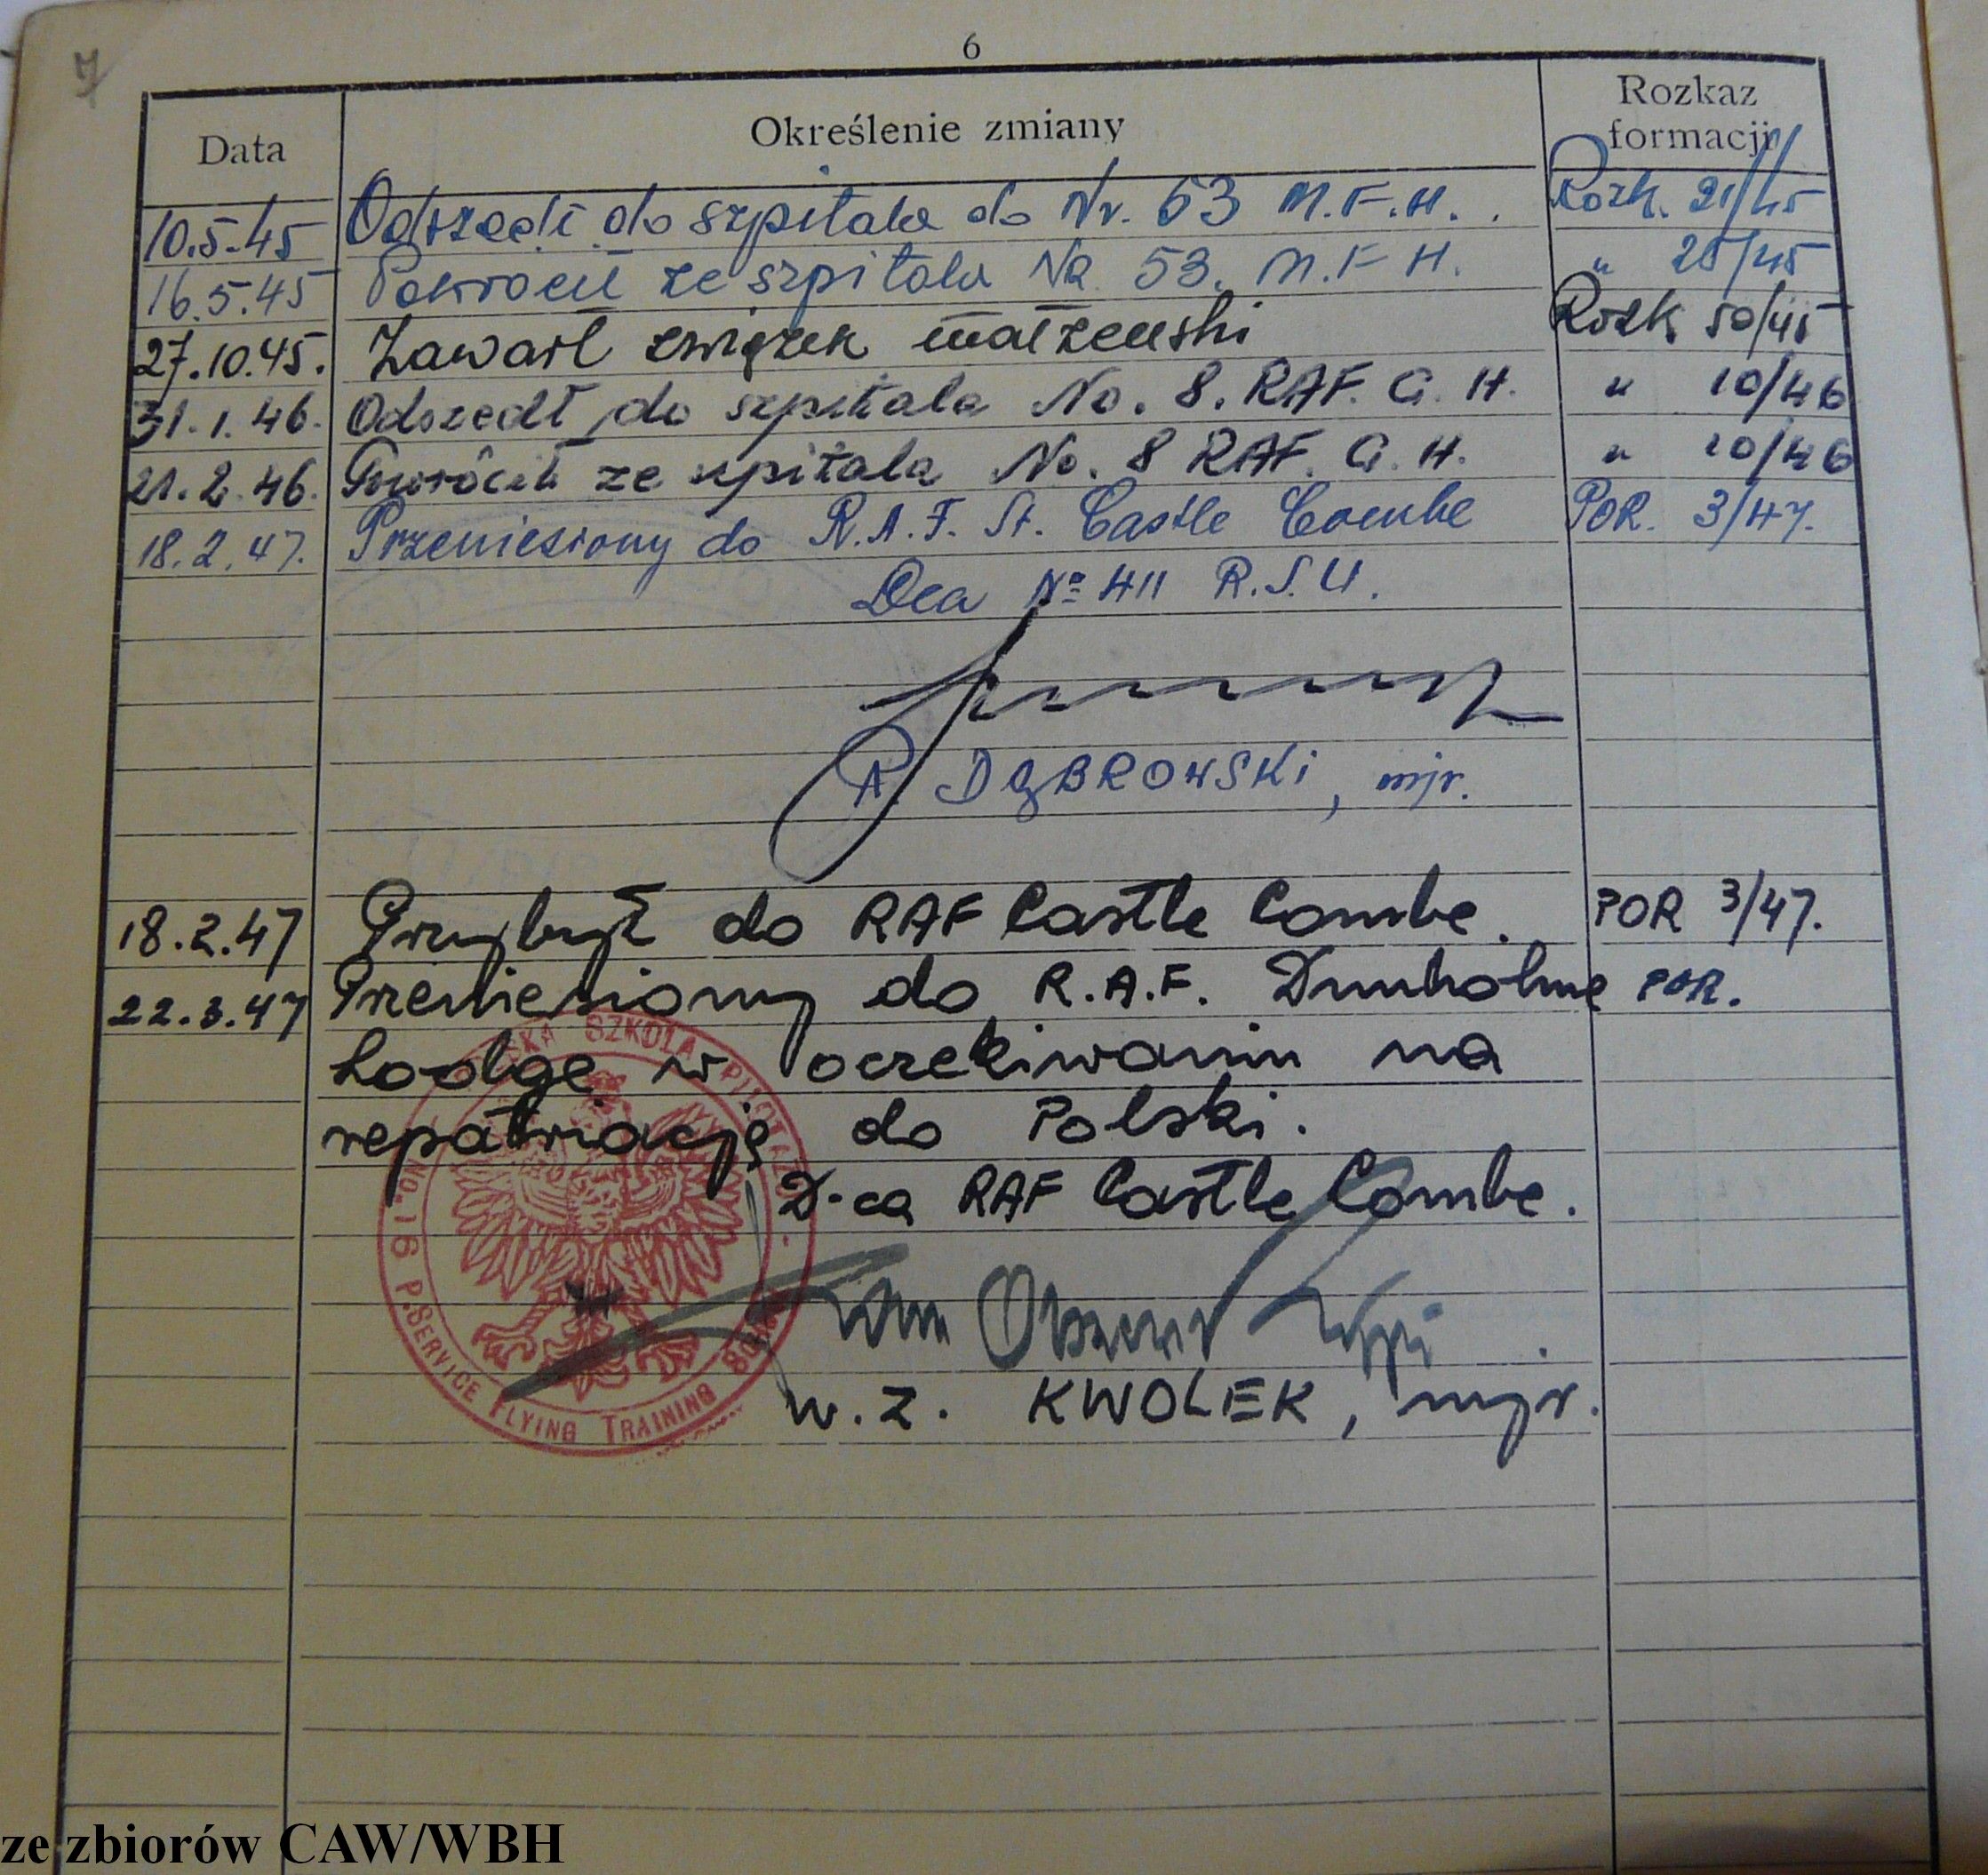 7
6
Data Określenie zmiany Rozkaz formacji
10.5.45 Odszedł do szpitala do Nr. 53 M.F.H. Rozk. 21/45
16.5.45 Powrócił ze szpitala No 53. M.F.H. " 25/45
27.10.45. Zawarł związek małżeński Rozk 50/45
31.1.46. Odszedł do szpitala No. 8. RAF. G. H. " 10/46
21.2.46. Powrócił ze szpitala No. 8 RAF. G. H. " 10/46
18.2.47. Przeniesiony do R.A.F. St. Castle Combe POR. 3/47.
Dca No 411 R.S.U.
A. DĄBROWSKI, mjr.
18.2.47 Przybył do RAF Castle Combe. POR 3/47.
22.3.47 Przeniesiony do R.A.F. Dunholme POR.
Lodge w oczekiwaniu na
repatriację do Polski.
D-ca RAF Castle Combe.
w.z. KWOLEK, mjr.
SZKOŁA PILOTAŻU
No. 16 P. SERVICE FLYING TRAINING
ze zbiorów CAW/WBH